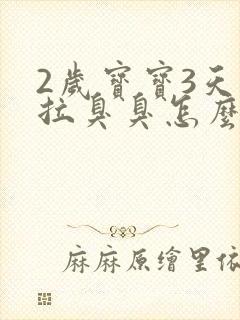 2歲寶寶3天
拉臭臭怎麼
麻麻原繪里依